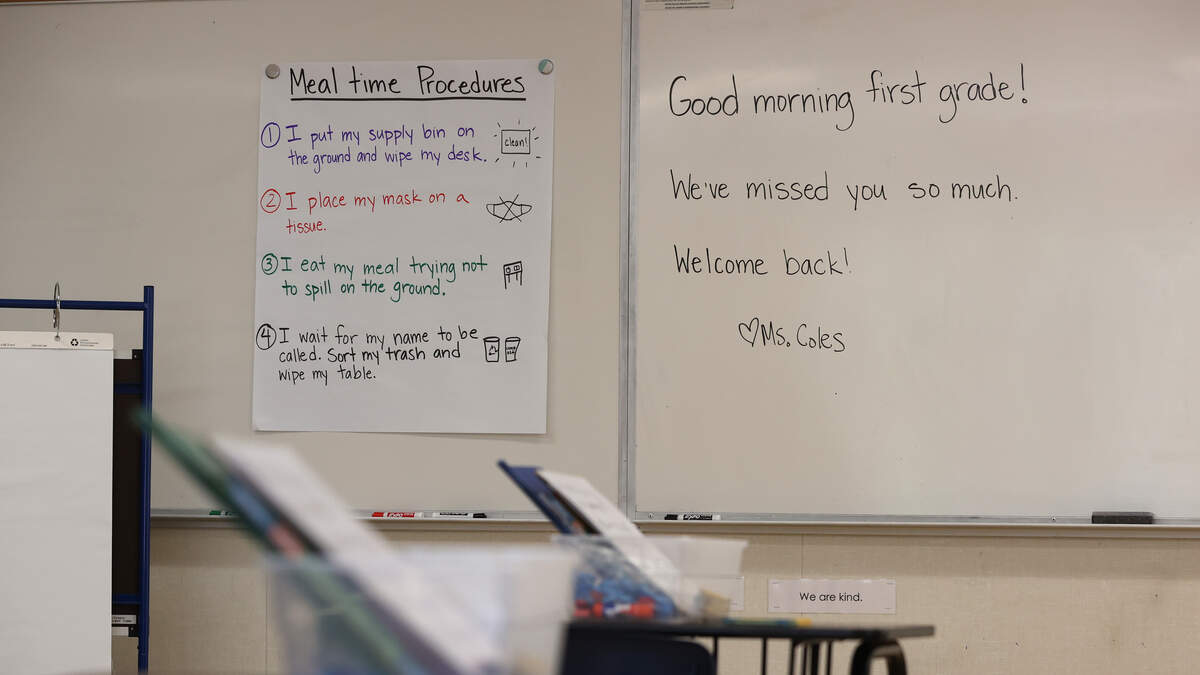 Meal time Procedures
1 I put my supply bin on
the ground and wipe my desk.
clean!
2 I place my mask on a
tissue.
3 I eat my meal trying not
to spill on the ground.
4 I wait for my name to be
called. Sort my trash and
wipe my table.
Good morning first grade!
We've missed you so much.
Welcome back!
♡Ms. Coles
EXPO
We are kind.